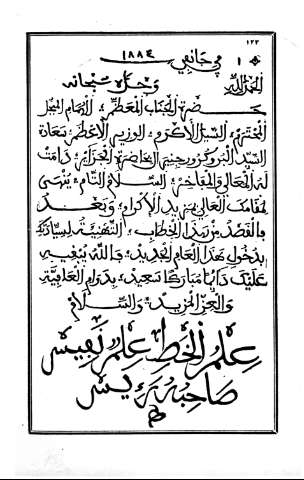 الحمد لله في جانفي ١٨٨٤ ١
وحده سبحانه
حضرة الجناب المعظم؛ الهمام المبجل
المحترم؛ السيد الأكرم؛ الوزير الأعظم؛ سعادة
السيد البروكرور جنرال بحاضرة الجزائر؛ دامت
له المعالي والمفاخر؛ السلام التام؛
لمقامك العالي بمزيد الإكرام؛ وبعد
فالقصد من هذا الخطاب؛ التهنية لسيادتك
بدخول هذا العام الجديد؛ فالله يبقيه
عليك دايما مباركا سعيد؛ بدوام العافية
والعز المزيد؛ والسلام
علم الخط علم نفيس
صاحبه رييس